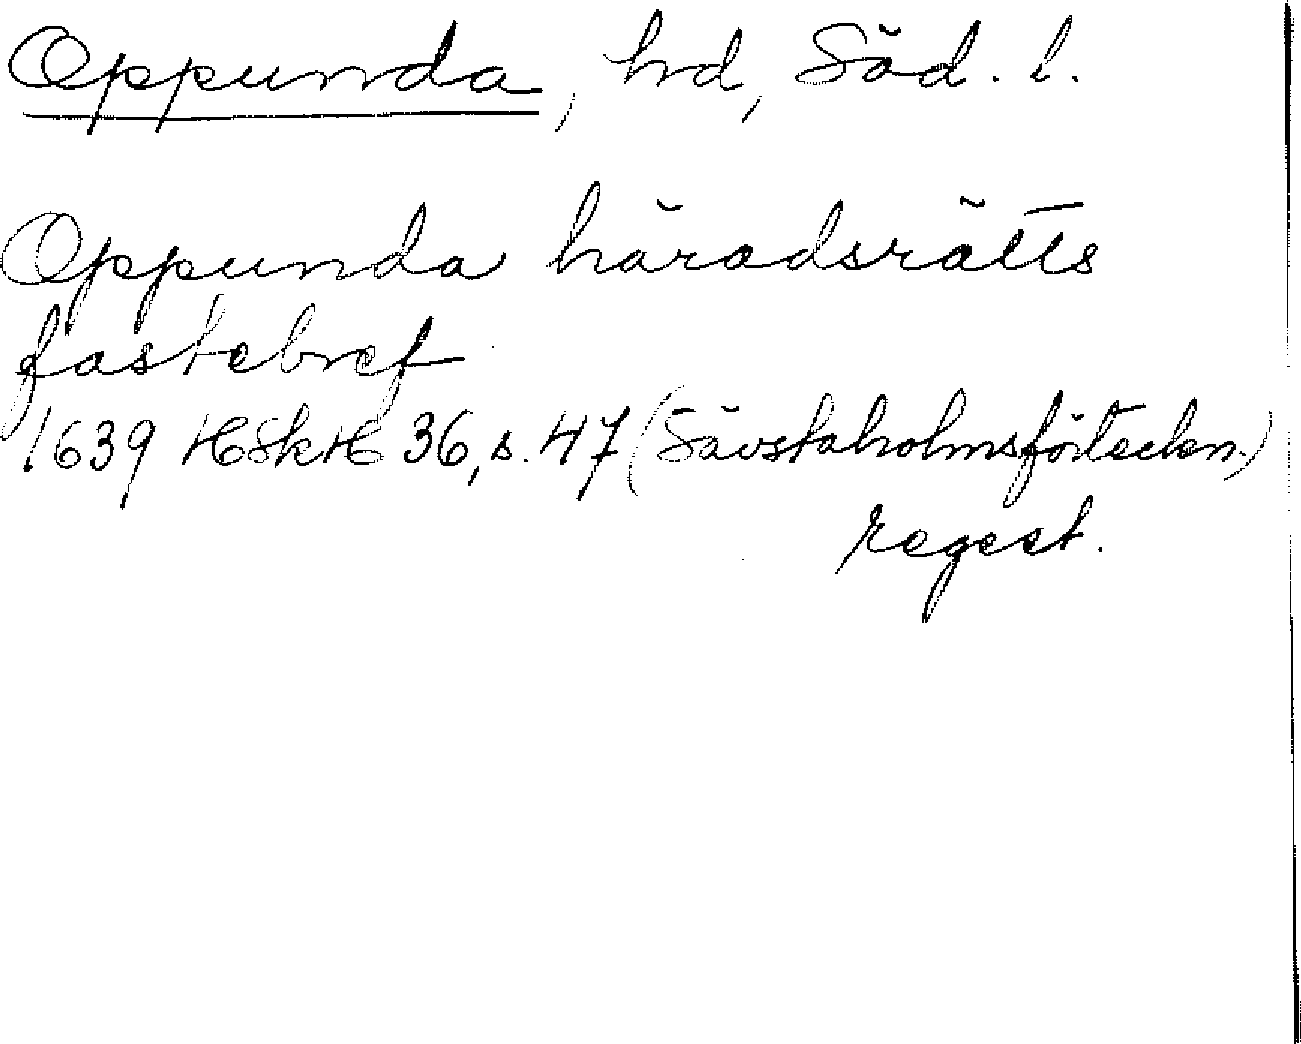 Oppunda, hd, Söd. l.
Oppunda häradsrätts
fastebref
1639 HSkH 36, s. 47 (Sävstaholmsförteckn.)
regest.